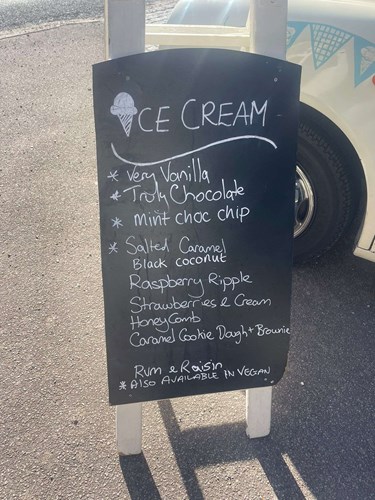 ICE CREAM
* Very Vanilla
* Truly Chocolate
* mint choc chip
* Salted Caramel
Black coconut
Raspberry Ripple
Strawberries & Cream
Honey Comb
Caramel Cookie Dough + Brownie
Rum & Raisin
* ALSO AVAILABLE IN VEGAN